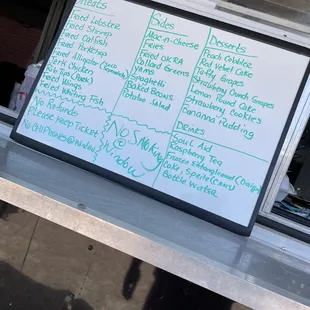 Meats
Fried Lobster
Fried Shrimp
Fried Catfish
Fried Porkchop
Fried Alligator
Jerk Chicken
Fried Wings
Fried Whiting Fish
No Refunds
Please Keep Ticket
No Cell Phones @ window
No Smoking
@
Window
Sides
Mac-n-cheese
Fries
Fried OKRA
Collard Greens
Yams
Spaghetti
Baked Beans
Potato Salad
Desserts
Peach Cobbler
Red Velvet Cake
Taffy Grapes
Strawberry Crunch Grapes
Lemon Pound Cake
Strawberry Cookies
Bananna Pudding
Drinks
Soul Aid
Raspberry Tea
Frozen
Coke, Sprite (Cans)
Bottle Water